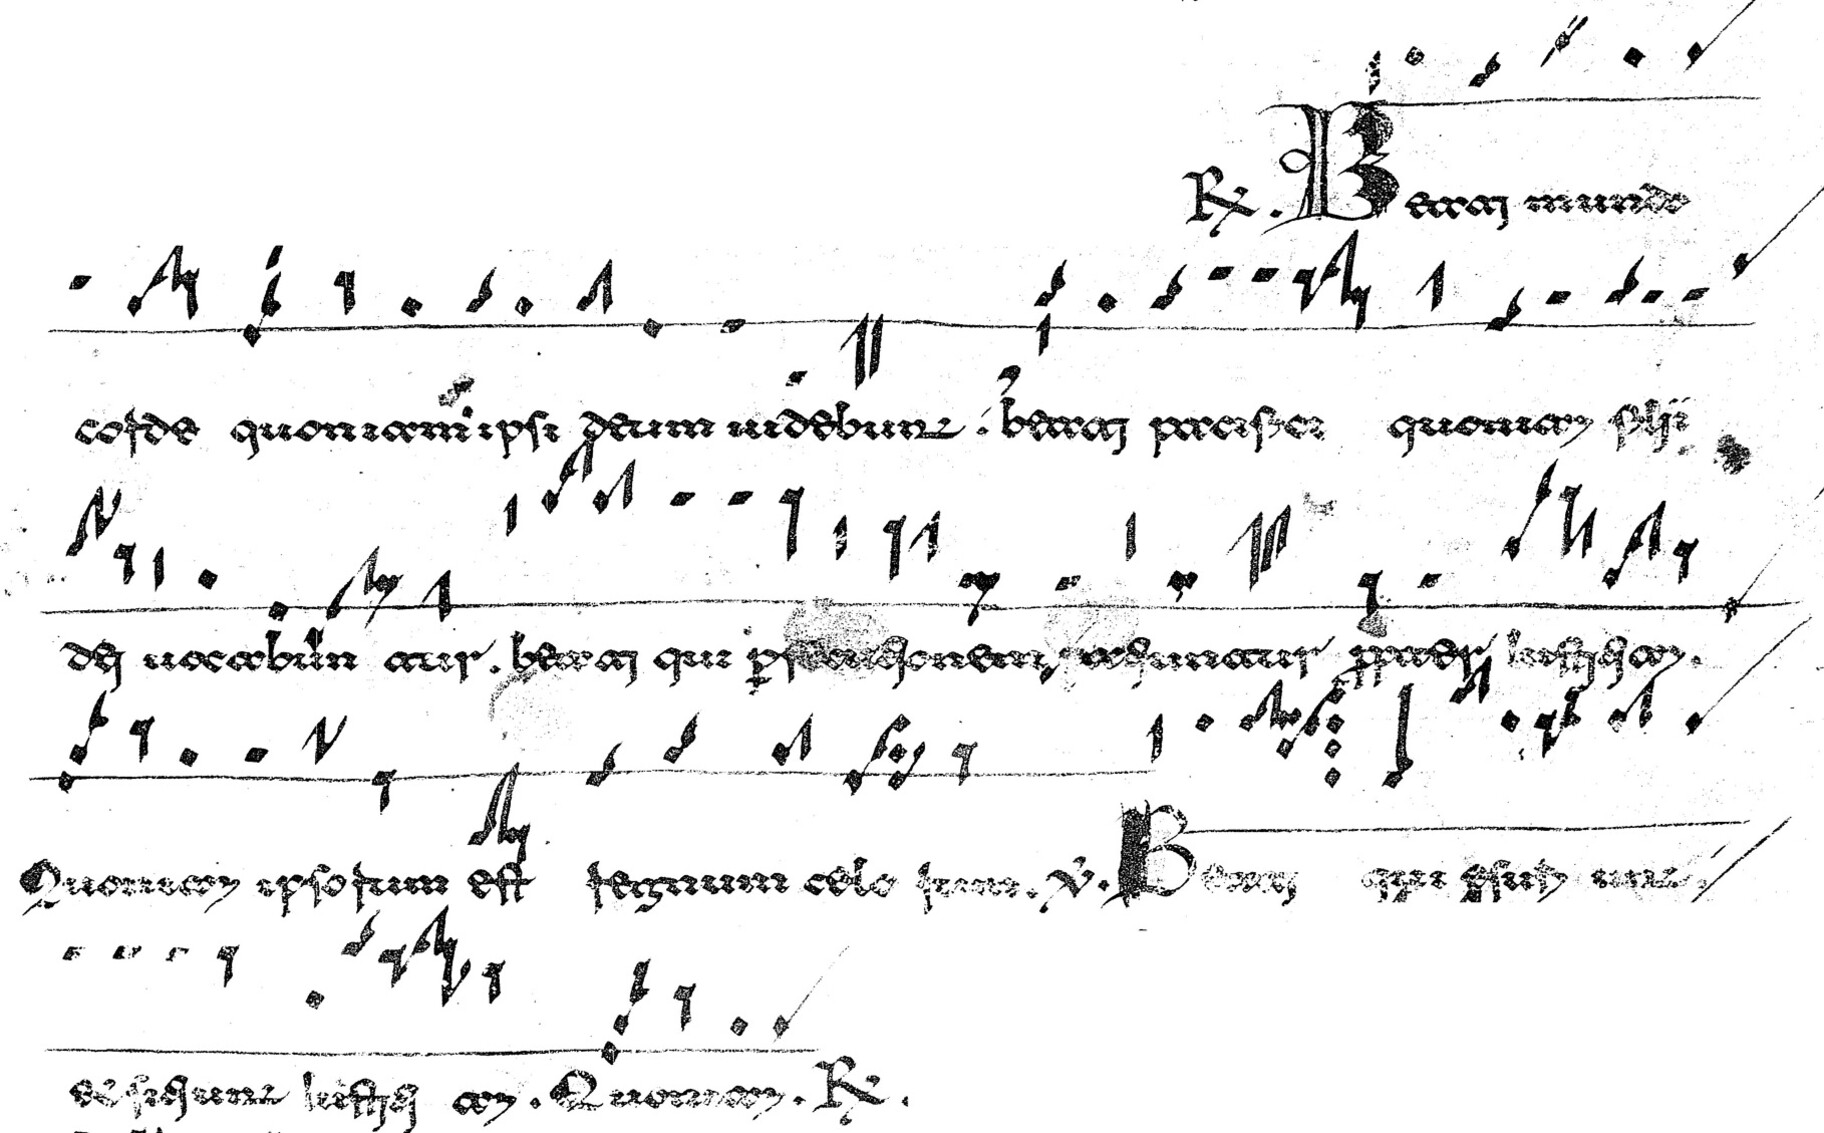 R. Beati mundo
corde quoniam ipsi deum uidebunt . beati pacifici quoniam filii
dei uocabuntur . beati qui persecutionem patiuntur propter iustitiam .
Quoniam ipsorum est regnum celorum . V. Beati qui esuriunt
et sitiunt iustitiam . Quoniam . R .